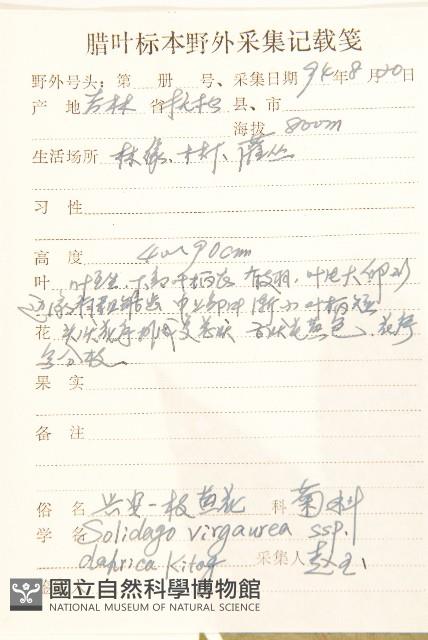 腊叶标本野外采集记载笺
野外号头：第 册 号、采集日期 94年8月20日
产 地 吉林 省 县、市
海拔 800m
生活场所 林缘、林下、灌丛
习 性
高 度 40~90cm
叶 叶互生 下部叶柄长 有翅，叶片大卵形
中上部叶渐小叶柄短
花 头状花序排成总状 舌状花黄色、花序
多分枝
果 实
备 注
俗 名 兴安一枝黄花 科 菊科
学 名 Solidago virgaurea ssp.
dahrica Kitag 采集人
國立自然科學博物館
NATIONAL MUSEUM OF NATURAL SCIENCE